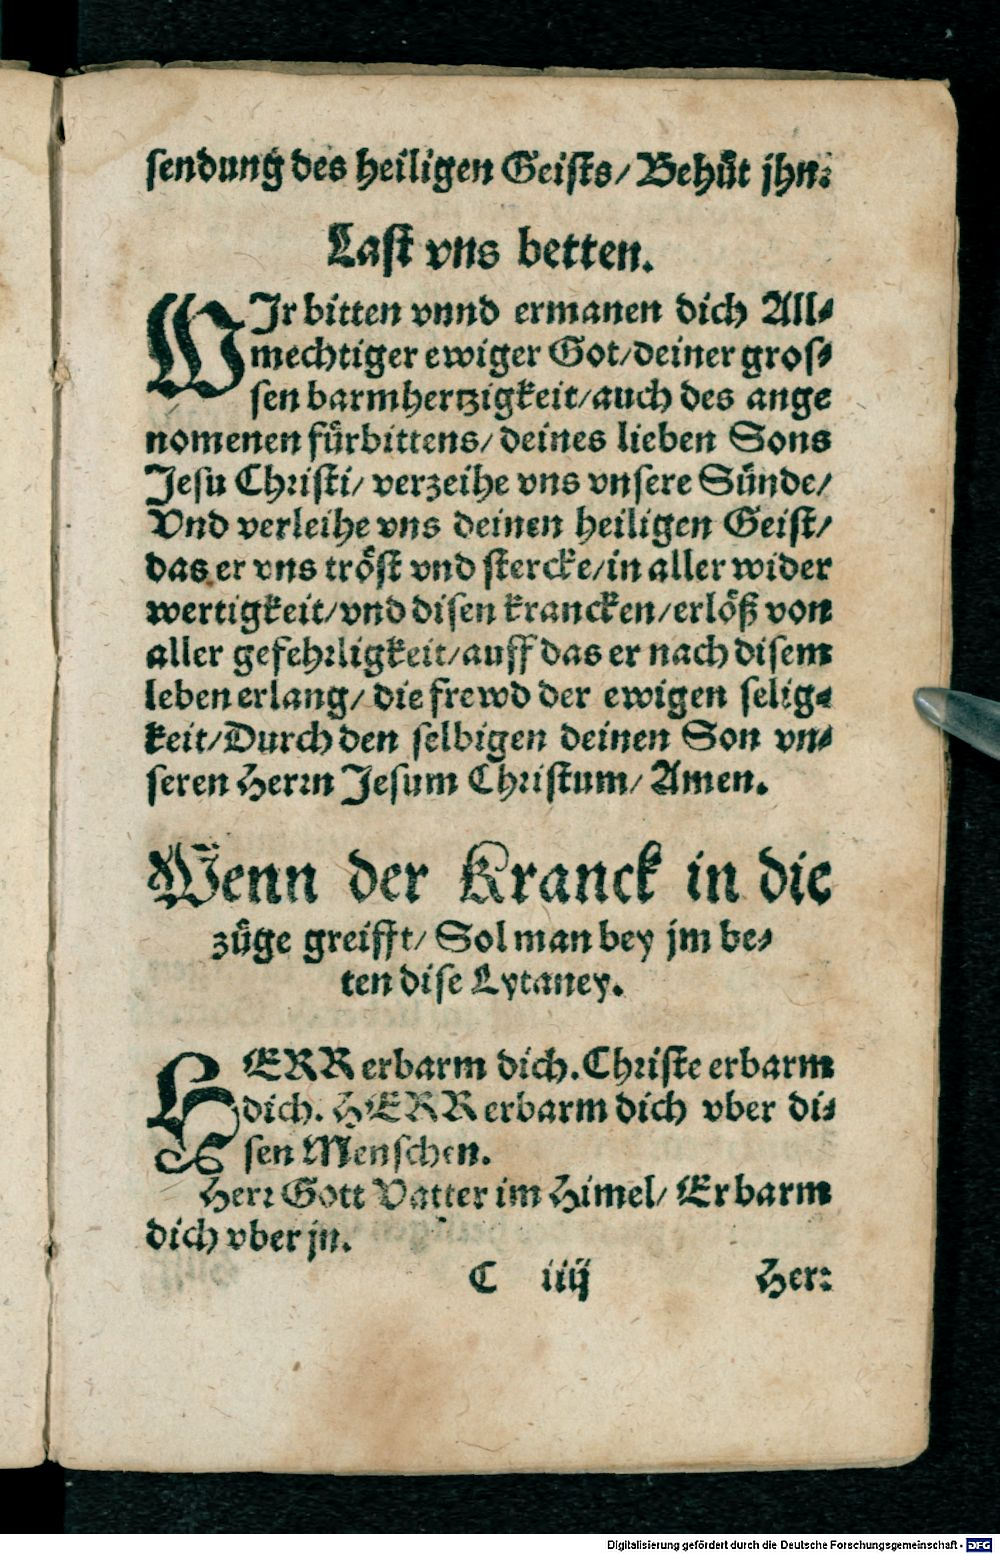 sendung des heiligen Geists/ Behuͤt jhn.
Last vns betten.
WIr bitten vnnd ermanen dich All⸗
mechtiger ewiger Got/deiner gros⸗
sen barmhertzigkeit/auch des ange
nomenen fuͤrbittens/ deines lieben Sons
Jesu Christi/ verzeihe vns vnsere Suͤnde/
Vnd verleihe vns deinen heiligen Geist/
das er vns troͤst vnd stercke/in aller wider
wertigkeit/vnd disen krancken/erloͤß von
aller gefehrligkeit/auff das er nach disem
leben erlang/ die frewd der ewigen selig⸗
keit/Durch den selbigen deinen Son vn⸗
seren Herrn Jesum Christum/ Amen.
Wenn der Kranck in die
zuͤge greifft/ Sol man bey jm be⸗
ten dise Lytaney.
HERR erbarm dich. Christe erbarm
dich. HERR erbarm dich vber di⸗
sen Menschen.
Herr Gott Vatter im Himel/ Erbarm
dich vber jn.
C iiij Herr
Digitalisierung gefördert durch die Deutsche Forschungsgemeinschaft - DFG